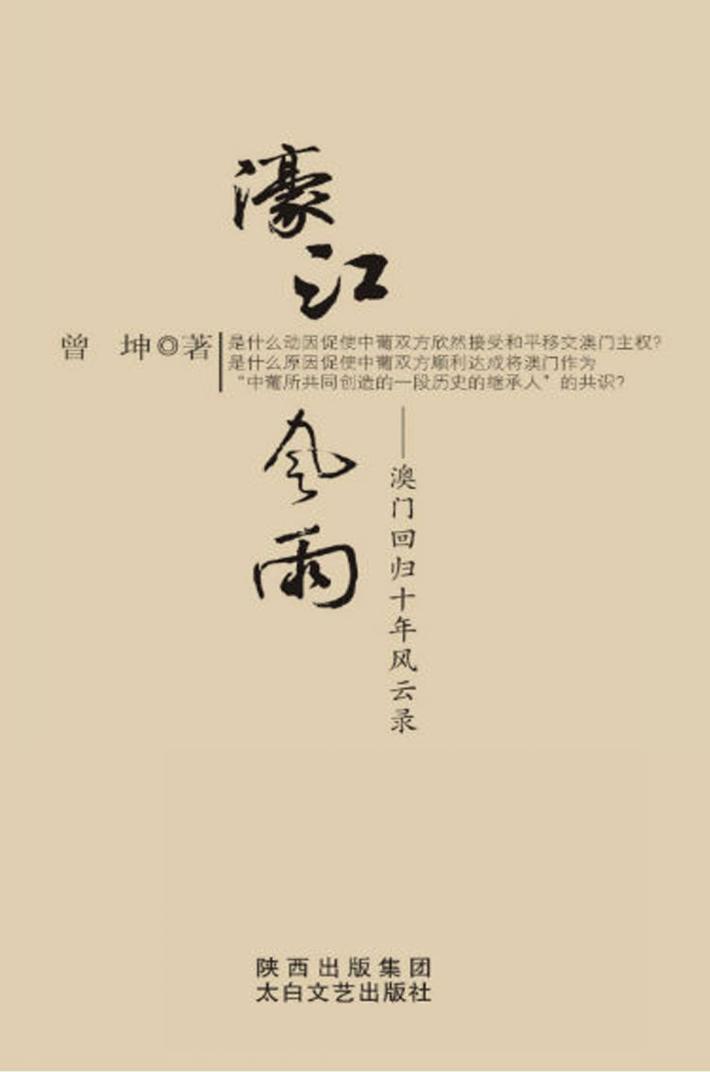 濠江
曾 坤◎著
是什么动因促使中葡双方欣然接受和平移交澳门主权?
是什么原因促使中葡双方顺利达成将澳门作为
“中葡所共同创造的一段历史的继承人”的共识?
风雨
——澳门回归十年风云录
陕西出版集团
太白文艺出版社